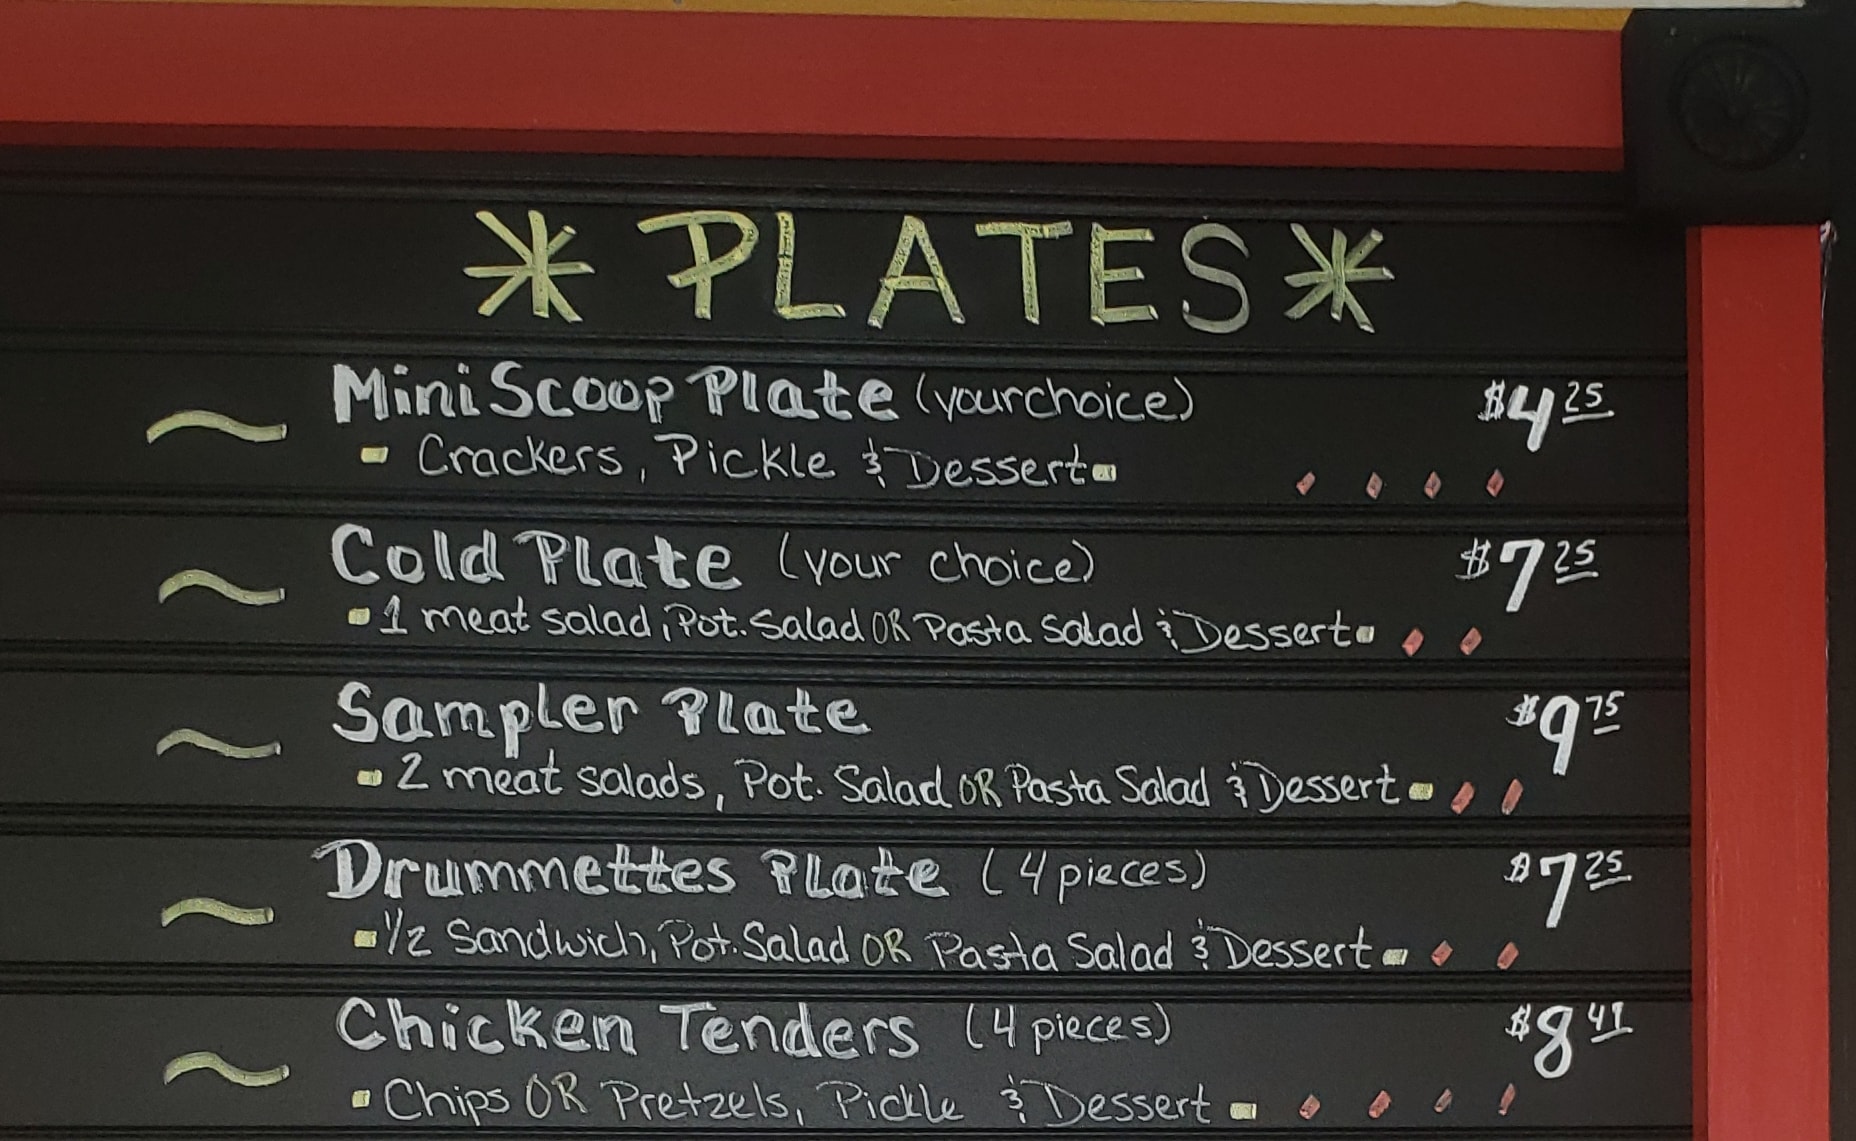 * PLATES *
Mini Scoop Plate (your choice) $4 25
Crackers, Pickle & Dessert
Cold Plate (your choice) $7 25
1 meat salad, Pot. Salad OR Pasta Salad & Dessert
Sampler Plate $9 75
2 meat salads, Pot. Salad OR Pasta Salad & Dessert
Drummettes Plate (4 pieces) $7 25
1/2 Sandwich, Pot. Salad OR Pasta Salad & Dessert
Chicken Tenders (4 pieces) $8
Chips OR Pretzels, Pickle & Dessert